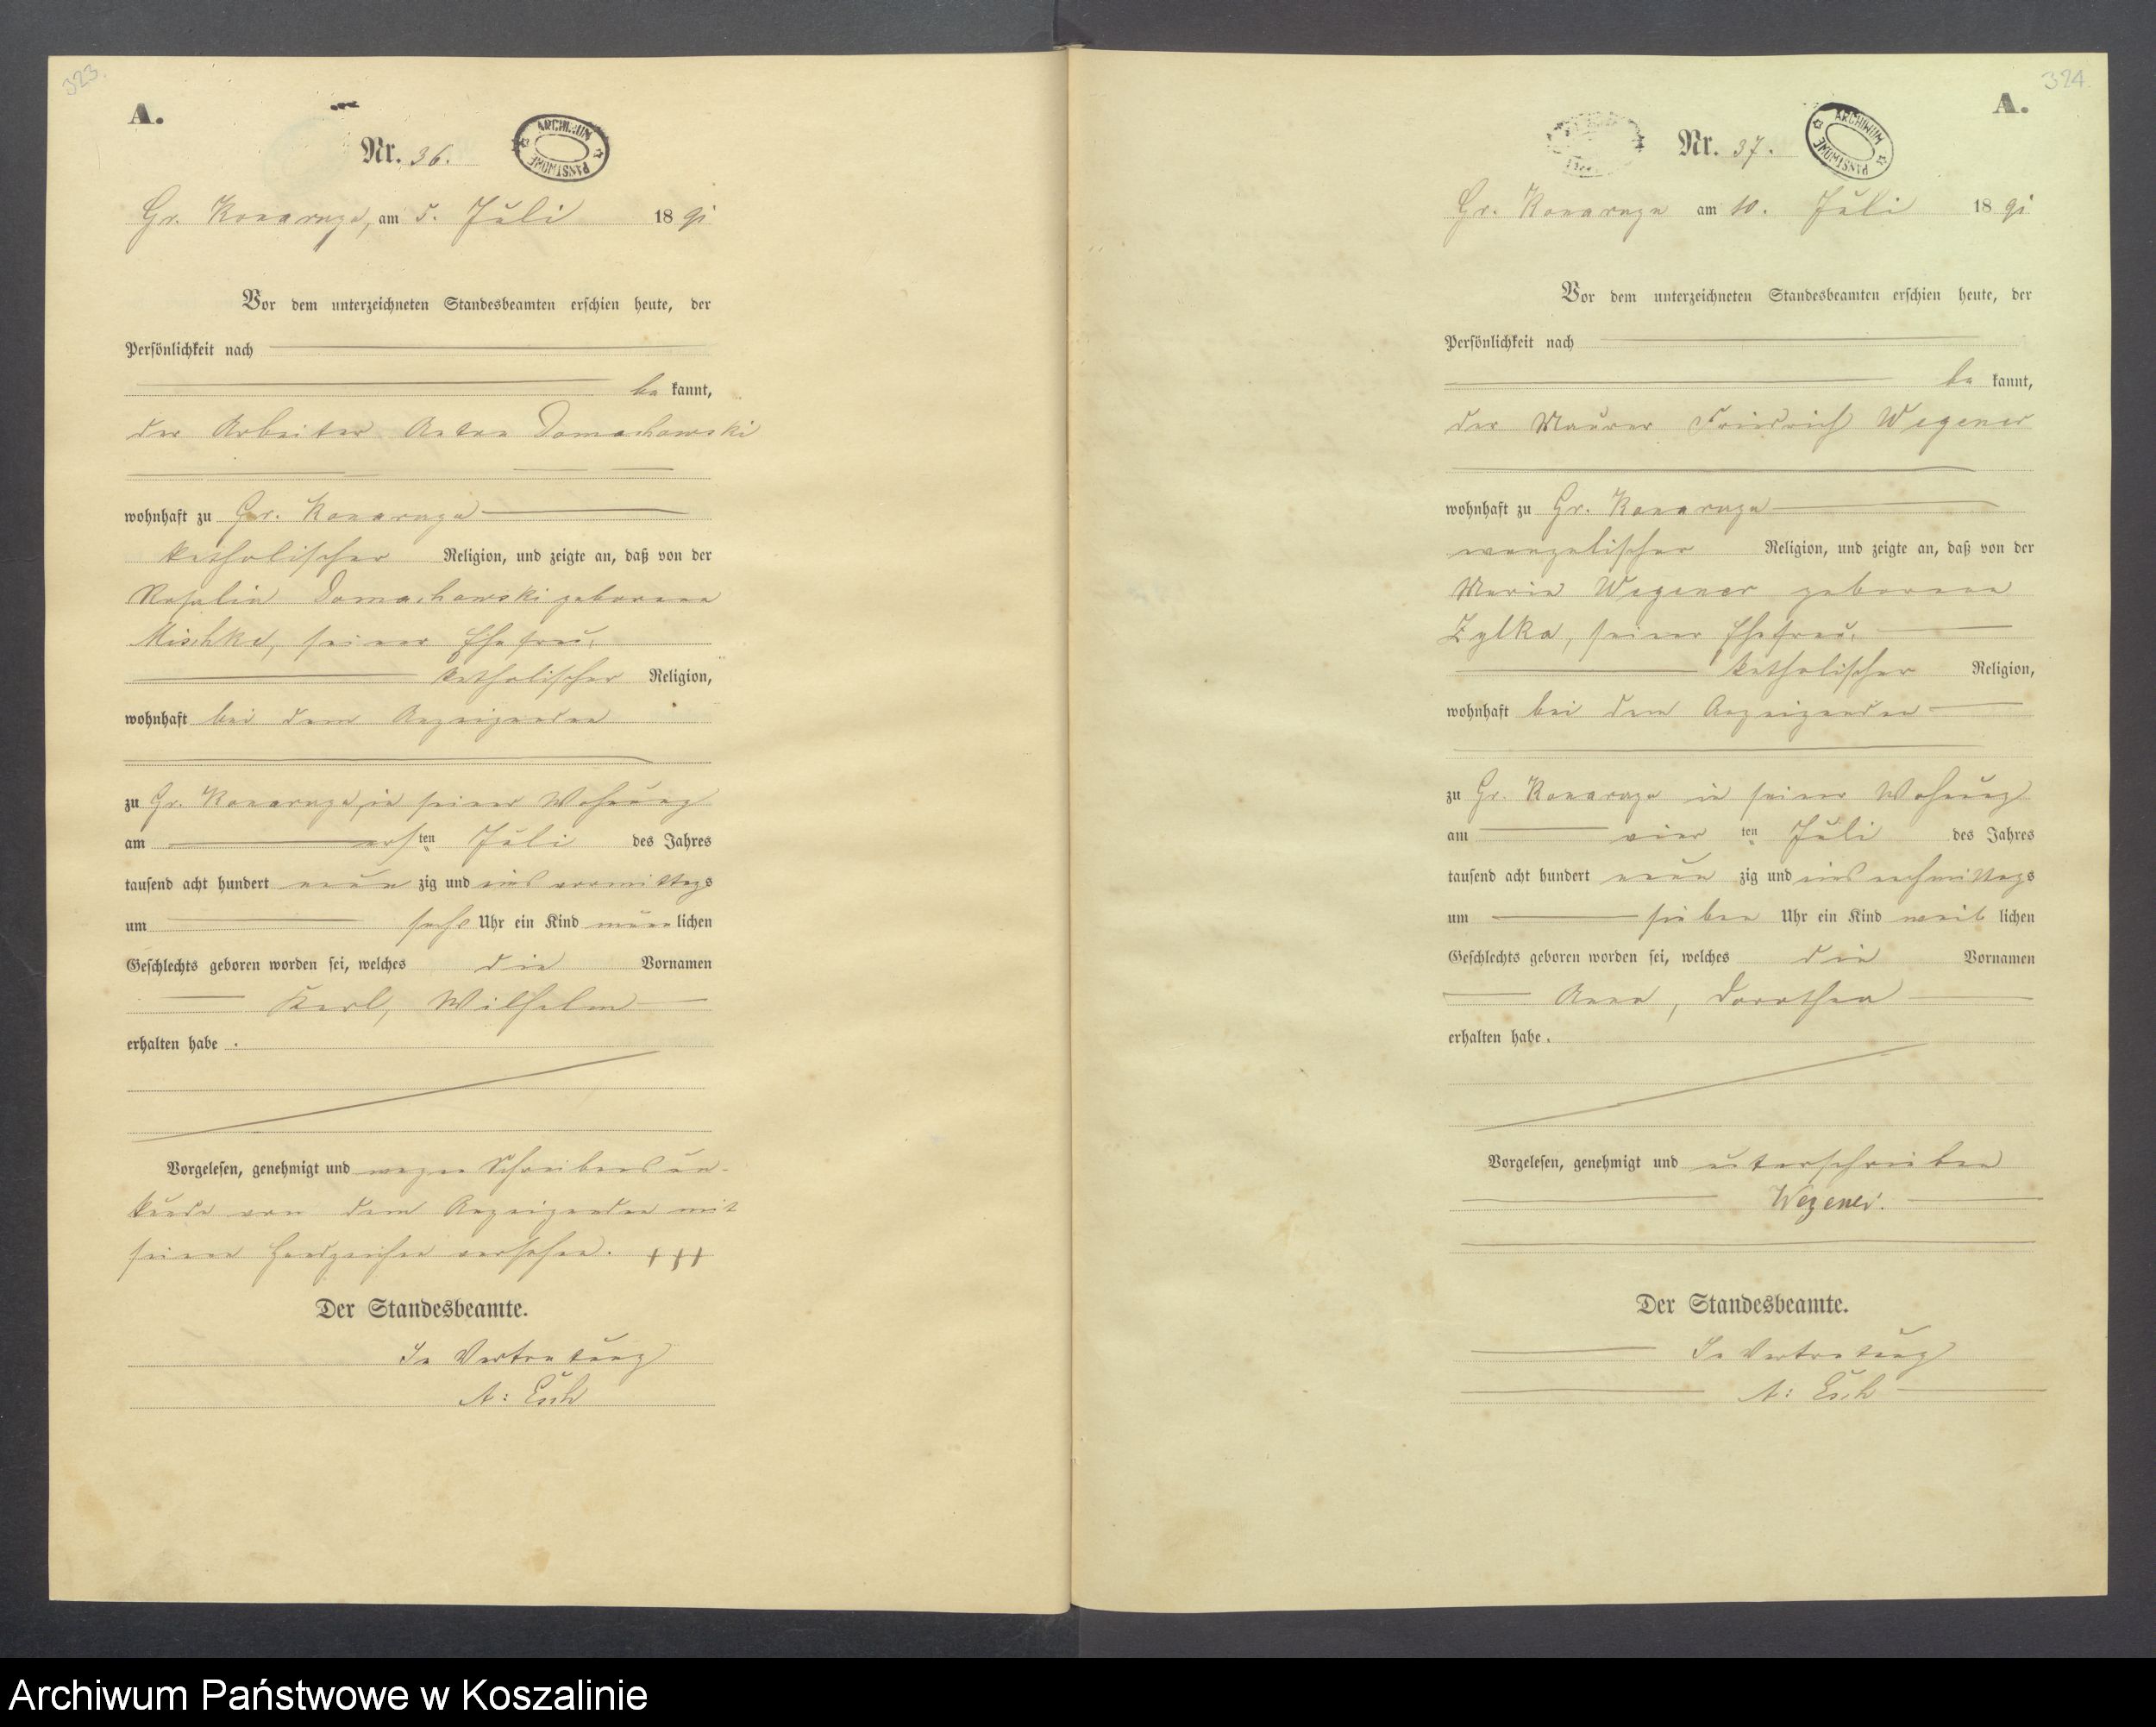 323.
A.
Nr. 36.
ARCHIWUM PAŃSTWOWE
Gr. Konarzyn, am 5. Juli 1891
Vor dem unterzeichneten Standesbeamten erschien heute, der
Persönlichkeit nach
bekannt,
der Arbeiter Anton Domachowski
wohnhaft zu Gr. Konarzyn
katholischer Religion, und zeigte an, daß von der
Rosalie Domachowski geborene
Mischke, seiner Ehefrau,
katholischer Religion,
wohnhaft bei dem Anzeigenden
zu Gr. Konarzyn, in seiner Wohnung
am ersten Juli des Jahres
tausend acht hundert neunzig und eins vormittags
um sechs Uhr ein Kind männlichen
Geschlechts geboren worden sei, welches die Vornamen
Karl, Wilhelm
erhalten habe.
Vorgelesen, genehmigt und wegen Schreibensun-
kunde von dem Anzeigenden mit
seinem Handzeichen versehen. +++
Der Standesbeamte.
In Vertretung
A: Esch
324.
A.
Nr. 37.
ARCHIWUM PAŃSTWOWE
Gr. Konarzyn am 10. Juli 1891
Vor dem unterzeichneten Standesbeamten erschien heute, der
Persönlichkeit nach
bekannt,
der Maurer Friedrich Wegener
wohnhaft zu Gr. Konarzyn
evangelischer Religion, und zeigte an, daß von der
Maria Wegener geborene
Zylka, seiner Ehefrau,
katholischer Religion,
wohnhaft bei dem Anzeigenden
zu Gr. Konarzyn in seiner Wohnung
am vierten Juli des Jahres
tausend acht hundert neunzig und eins nachmittags
um sieben Uhr ein Kind weiblichen
Geschlechts geboren worden sei, welches die Vornamen
Anna, Dorothea
erhalten habe.
Vorgelesen, genehmigt und unterschrieben
Wegener.
Der Standesbeamte.
In Vertretung
A: Esch
Archiwum Państwowe w Koszalinie